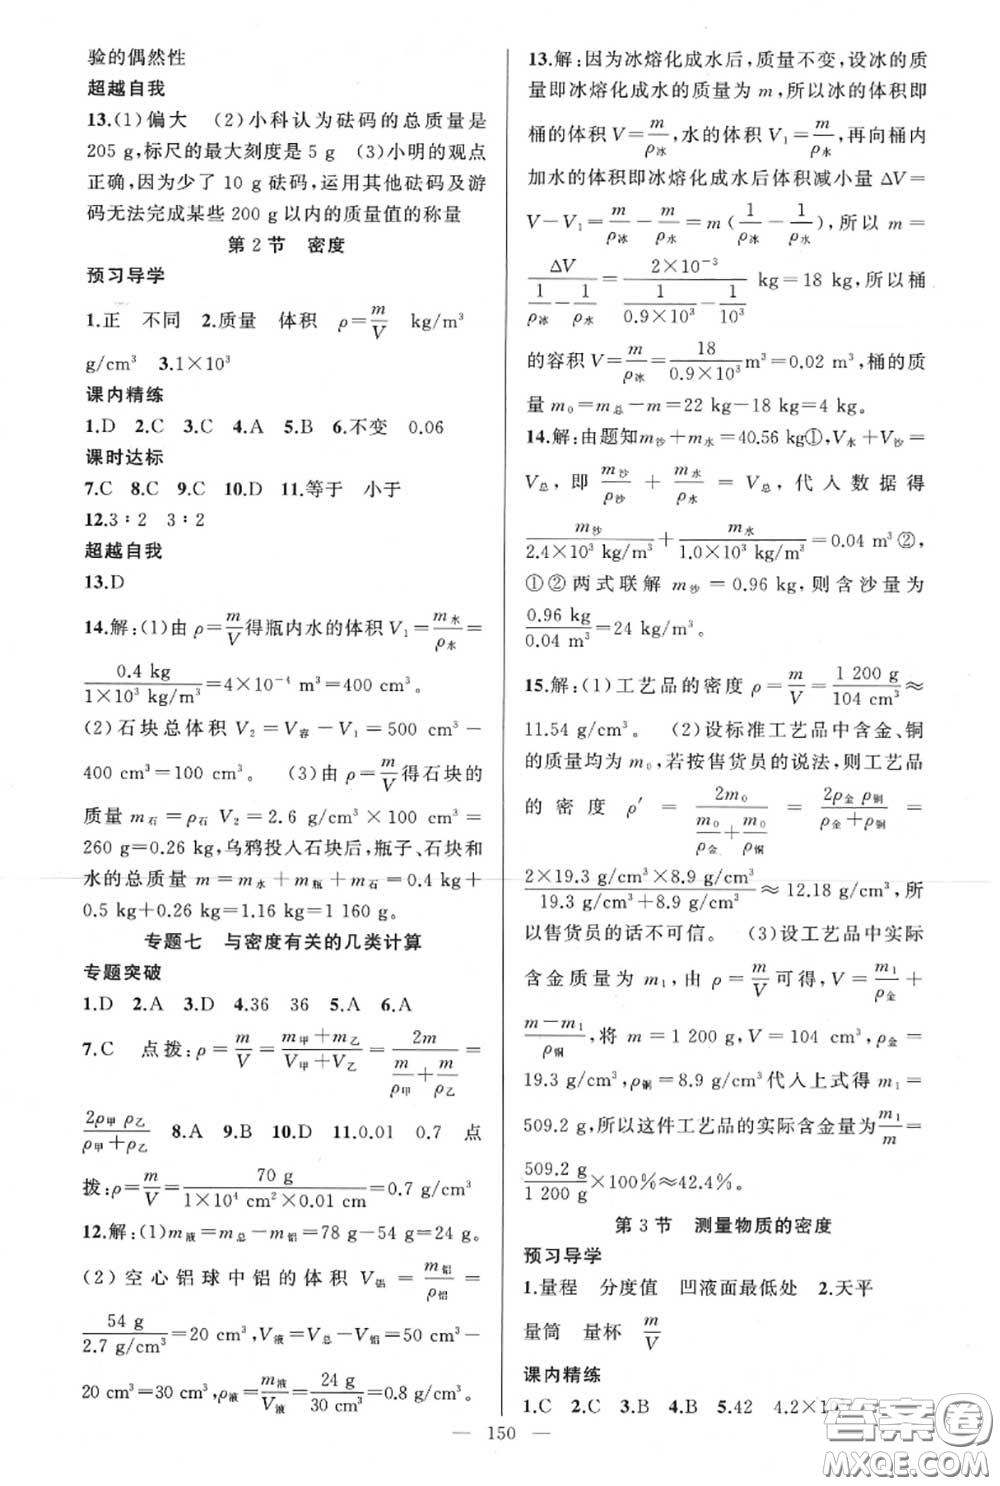 验的偶然性
超越自我
13.(1)偏大 (2)小科认为砝码的总质量是
205 g,标尺的最大刻度是 5 g (3)小明的观点
正确,因为少了 10 g 砝码,运用其他砝码及游
码无法完成某些 200 g 以内的质量值的称量
第 2 节 密度
预习导学
1.正 不同 2.质量 体积 ρ=m/V kg/m³
g/cm³ 3.1×10³
课内精练
1.D 2.C 3.C 4.A 5.B 6.不变 0.06
课时达标
7.C 8.C 9.C 10.D 11.等于 小于
12.3∶2 3∶2
超越自我
13.D
14.解:(1)由 ρ=m/V得瓶内水的体积 V₁=m水/ρ水=
0.4 kg/1×10³ kg/m³=4×10⁻⁴ m³=400 cm³。
(2)石块总体积 V₂=V容-V₁=500 cm³-
400 cm³=100 cm³。 (3)由 ρ=m/V得石块的
质量 m石=ρ石 V₂=2.6 g/cm³×100 cm³=
260 g=0.26 kg,乌鸦投入石块后,瓶子、石块和
水的总质量 m=m水+m瓶+m石=0.4 kg+
0.5 kg+0.26 kg=1.16 kg=1 160 g。
专题七 与密度有关的几类计算
专题突破
1.D 2.A 3.D 4.36 36 5.A 6.A
7.C 点拨:ρ=m/V=(m甲+m乙)/(V甲+V乙)=2m/(m/ρ甲+m/ρ乙)=
2ρ甲ρ乙/(ρ甲+ρ乙) 8.A 9.B 10.D 11.0.01 0.7 点
拨:ρ=m/V=70 g/(1×10⁴ cm²×0.01 cm)=0.7 g/cm³
12.解:(1)m液=m总-m铝=78 g-54 g=24 g。
(2)空心铝球中铝的体积 V铝=m铝/ρ铝=
54 g/2.7 g/cm³=20 cm³,V液=V总-V铝=50 cm³-
20 cm³=30 cm³,ρ液=m液/V液=24 g/30 cm³=0.8 g/cm³。
13.解:因为冰熔化成水后,质量不变,设冰的质
量即冰熔化成水的质量为 m,所以冰的体积即
桶的体积 V=m/ρ冰,水的体积 V₁=m/ρ水,再向桶内
加水的体积即冰熔化成水后体积减小量 ΔV=
V-V₁=m/ρ冰-m/ρ水=m(1/ρ冰-1/ρ水),所以 m=
ΔV/(1/ρ冰-1/ρ水)=2×10⁻³/(1/0.9×10³-1/10³) kg=18 kg,所以桶
的容积 V=m/ρ冰=18/0.9×10³ m³=0.02 m³,桶的质
量 m₀=m总-m=22 kg-18 kg=4 kg。
14.解:由题知m沙+m水=40.56 kg①,V水+V沙=
V总,即 m沙/ρ沙+m水/ρ水=V总,代入数据得
m沙/2.4×10³ kg/m³+m水/1.0×10³ kg/m³=0.04 m³②,
①②两式联解 m沙=0.96 kg,则含沙量为
0.96 kg/0.04 m³=24 kg/m³。
15.解:(1)工艺品的密度 ρ=m/V=1 200 g/104 cm³≈
11.54 g/cm³。 (2)设标准工艺品中含金、铜
的质量均为 m₀,若按售货员的说法,则工艺品
的密度 ρ′=2m₀/(m₀/ρ金+m₀/ρ铜)=2ρ金ρ铜/(ρ金+ρ铜)=
2×19.3 g/cm³×8.9 g/cm³/(19.3 g/cm³+8.9 g/cm³)≈12.18 g/cm³,所
以售货员的话不可信。 (3)设工艺品中实际
含金质量为 m₁,由 ρ=m/V可得,V=m₁/ρ金+
(m-m₁)/ρ铜,将 m=1 200 g,V=104 cm³,ρ金=
19.3 g/cm³,ρ铜=8.9 g/cm³代入上式得 m₁=
509.2 g,所以这件工艺品的实际含金量为m₁/m=
509.2 g/1 200 g×100%≈42.4%。
第 3 节 测量物质的密度
预习导学
1.量程 分度值 凹液面最低处 2.天平
量筒 量杯 m/V
课内精练
1.C 2.C 3.B 4.B 5.42 4.2×10
— 150 —
答案圈
MXQE.COM